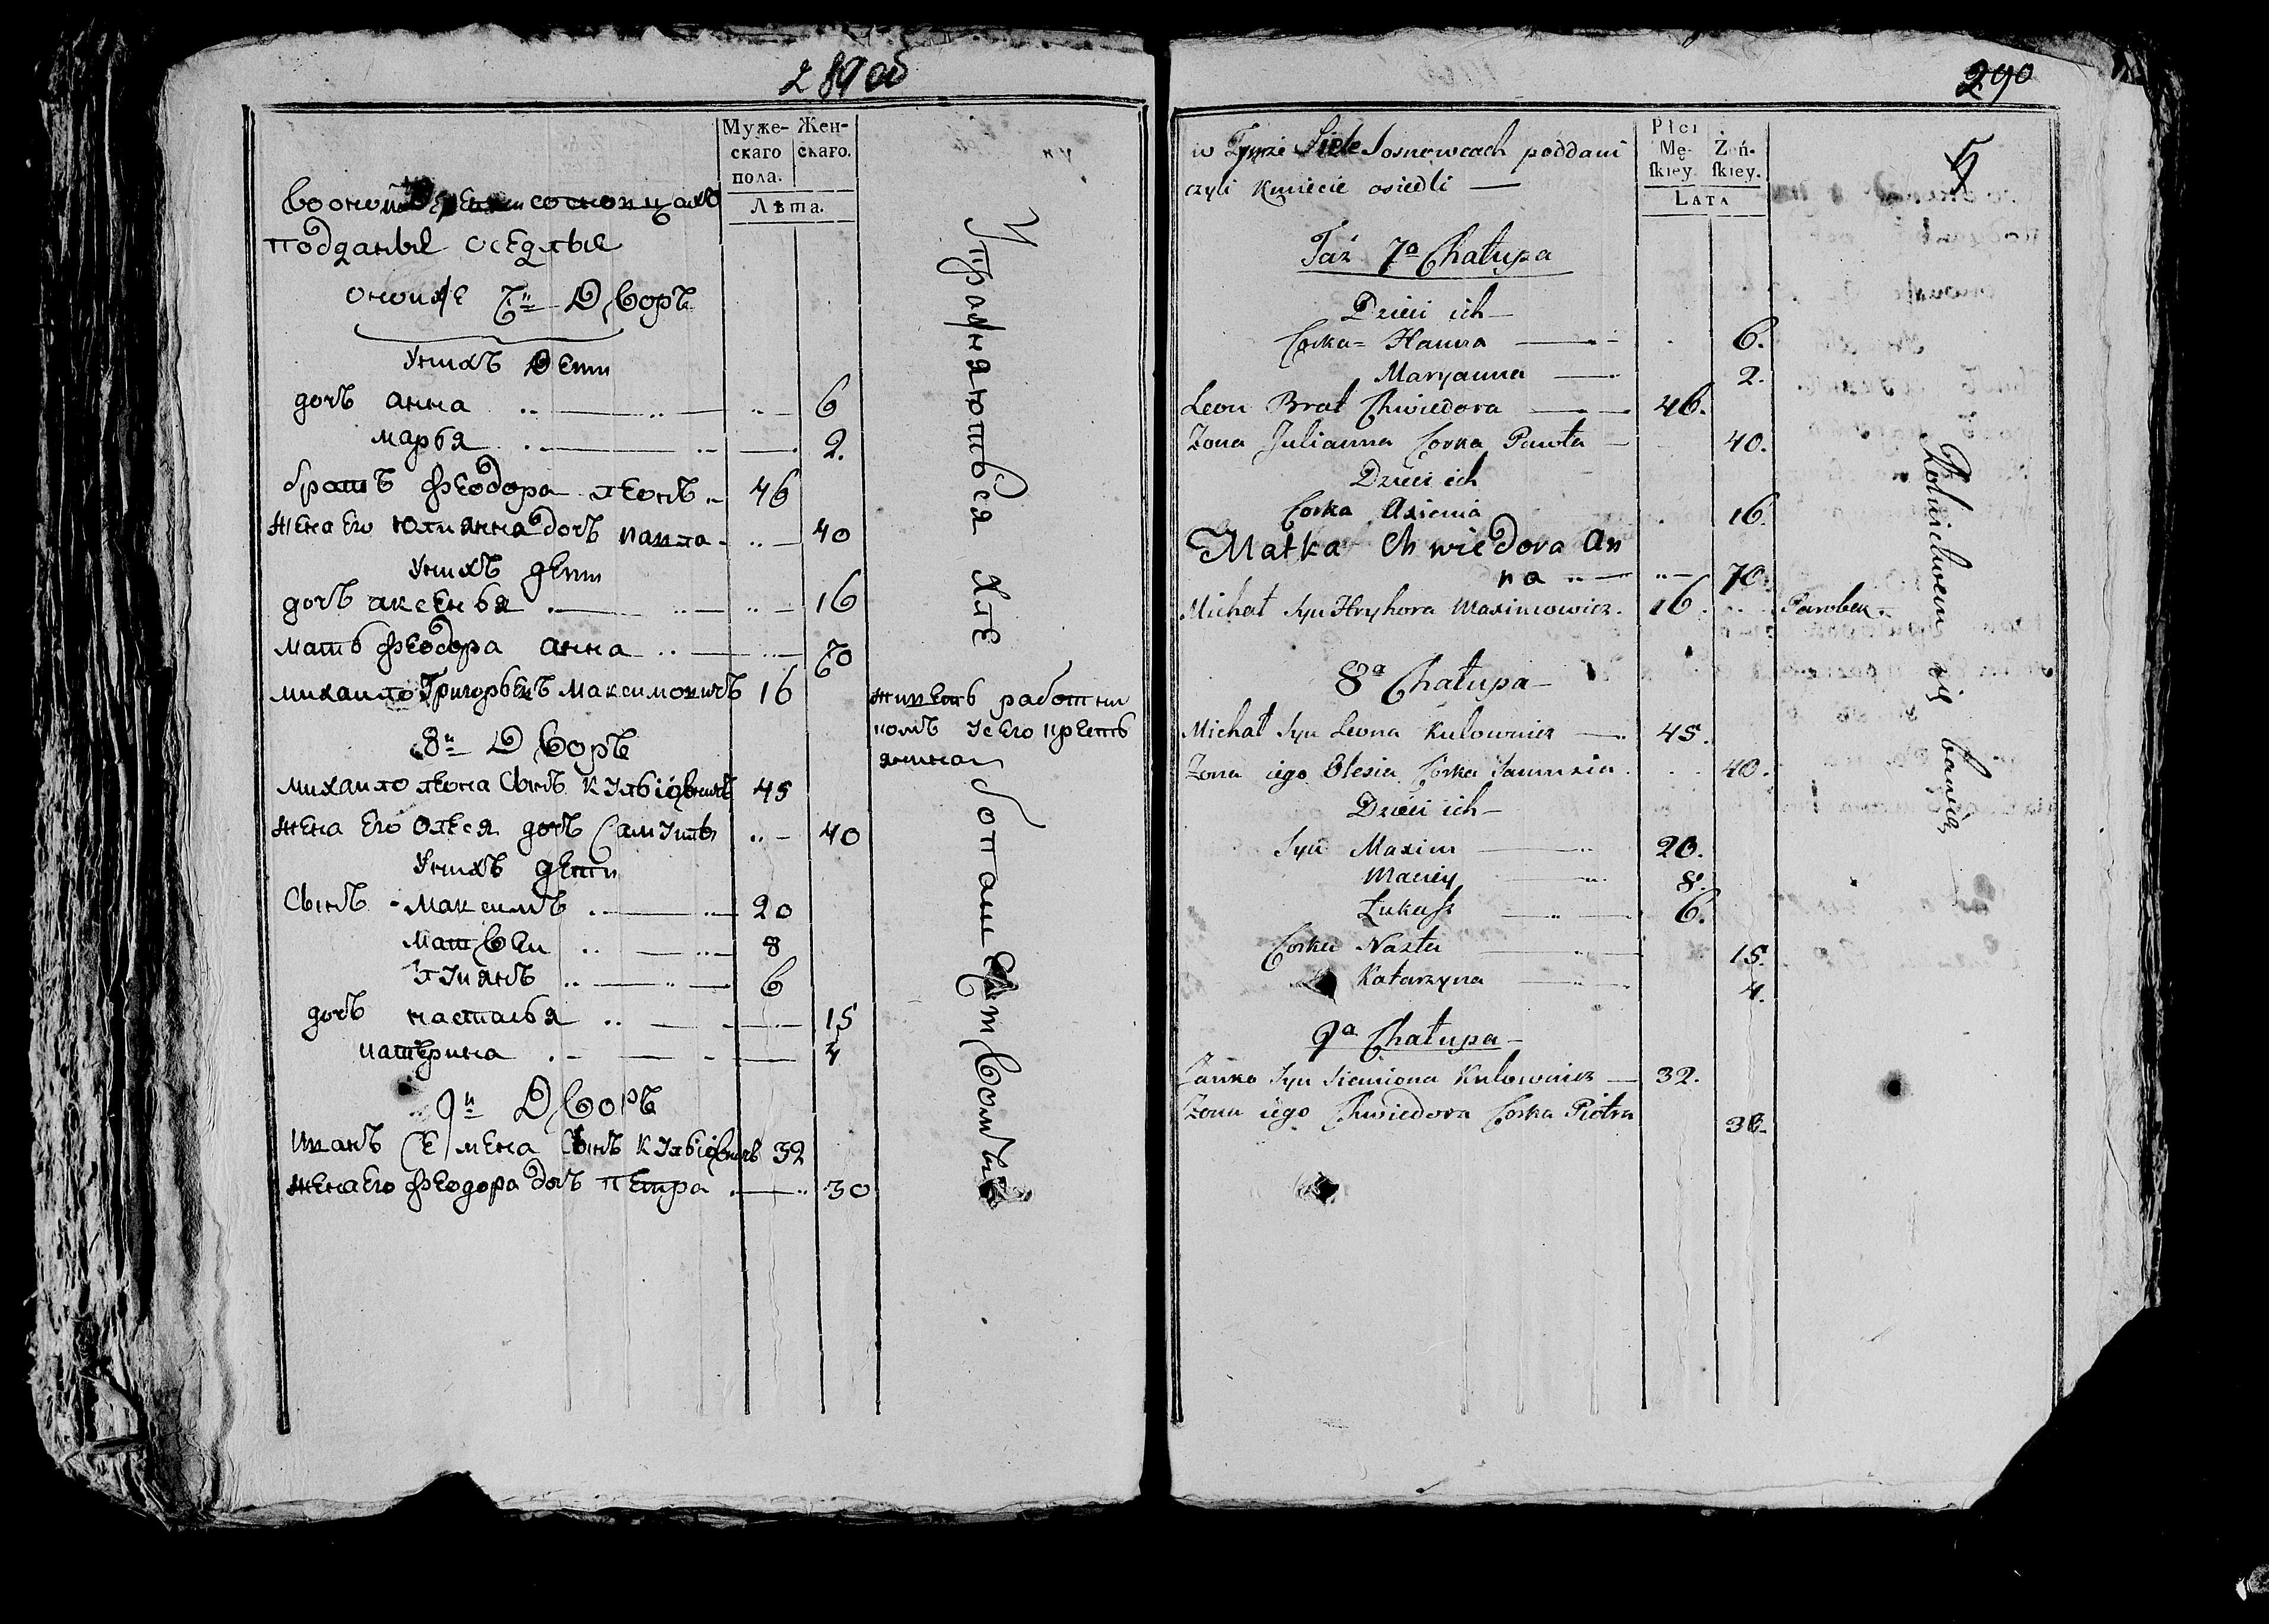 289 об
Муже- Жен-
скаго скаго.
пола.
Лѣта.
во оной деревни сосновцахъ
подданые оседлые
оной же 7й Дворъ
Унихъ Дети
дочь анна 6
марья 2.
братъ феодора леонъ 46
жена Его юлианна дочь павла 40
Унихъ дети
дочь аксенья 16
мать феодора анна 70
михаило Григорьевъ Максимовичъ 16
живетъ работни
комъ У сего крестъ
янина
8й Дворъ
михаило леона Сынъ Кульбовичъ 45
жена Его Олеся дочь Самуила 40
Унихъ дети
Сынъ Максимъ 20
Матвеи 8
Лукянъ 6
дочь настасья 15
катерина 4
9й Дворъ
Иванъ Семена Сынъ Кульбовичъ 32
жена Его феодора дочь петра 30
Упражняются хле
бопашеством
290
5
w Tymże Siele Sosnowcach poddani
czyli Kmiecie osiedli
Płci
Mę- Żeń-
ſkiey. ſkiey.
LATA
Taż 7a Chałupa
Dzieci ich
Corka Hanna 6.
Maryanna 2.
Leon Brat Chwiedora 46.
Zona Julianna Corka Pawła 40.
Dzieci ich
Corka Axienia 16.
Matka Chwiedora An
na 70
Michał Syn Hryhora Maximowicz. 16. Parobek.
8a Chałupa
Michał Syn Leona Kulowicz 45.
Zona iego Olesia Corka Samuela 40.
Dzieci ich
Syn Maxim 20.
Maciey 8.
Łukaſz 6.
Corka Nasta 15.
Katarzyna 4.
9a Chałupa
Janko Syn Siemiona Kulowicz 32.
Zona iego Chwiedora Corka Piotra 30.
Rolnictwem się bawią